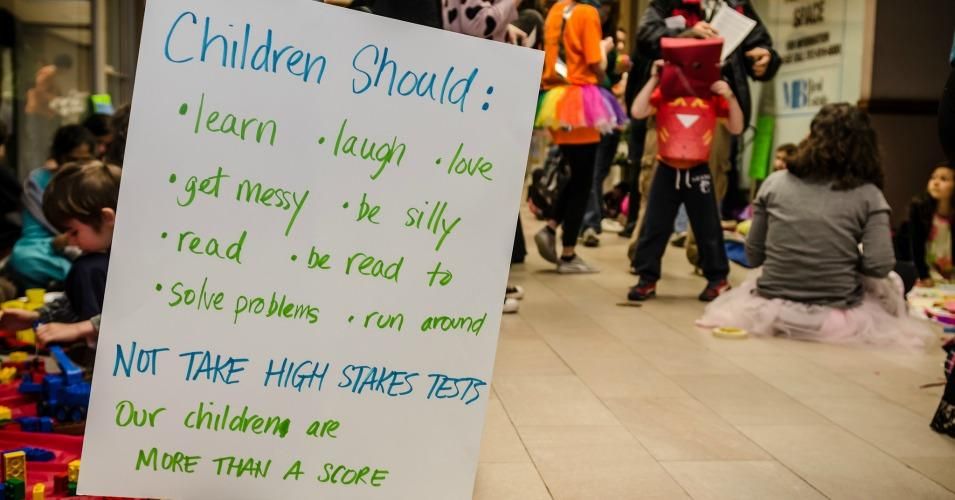 Children Should:
• learn • laugh • love
• get messy • be silly
• read • be read to
• solve problems • run around
NOT TAKE HIGH STAKES TESTS
Our children are
MORE THAN A SCORE
SPACE
MB